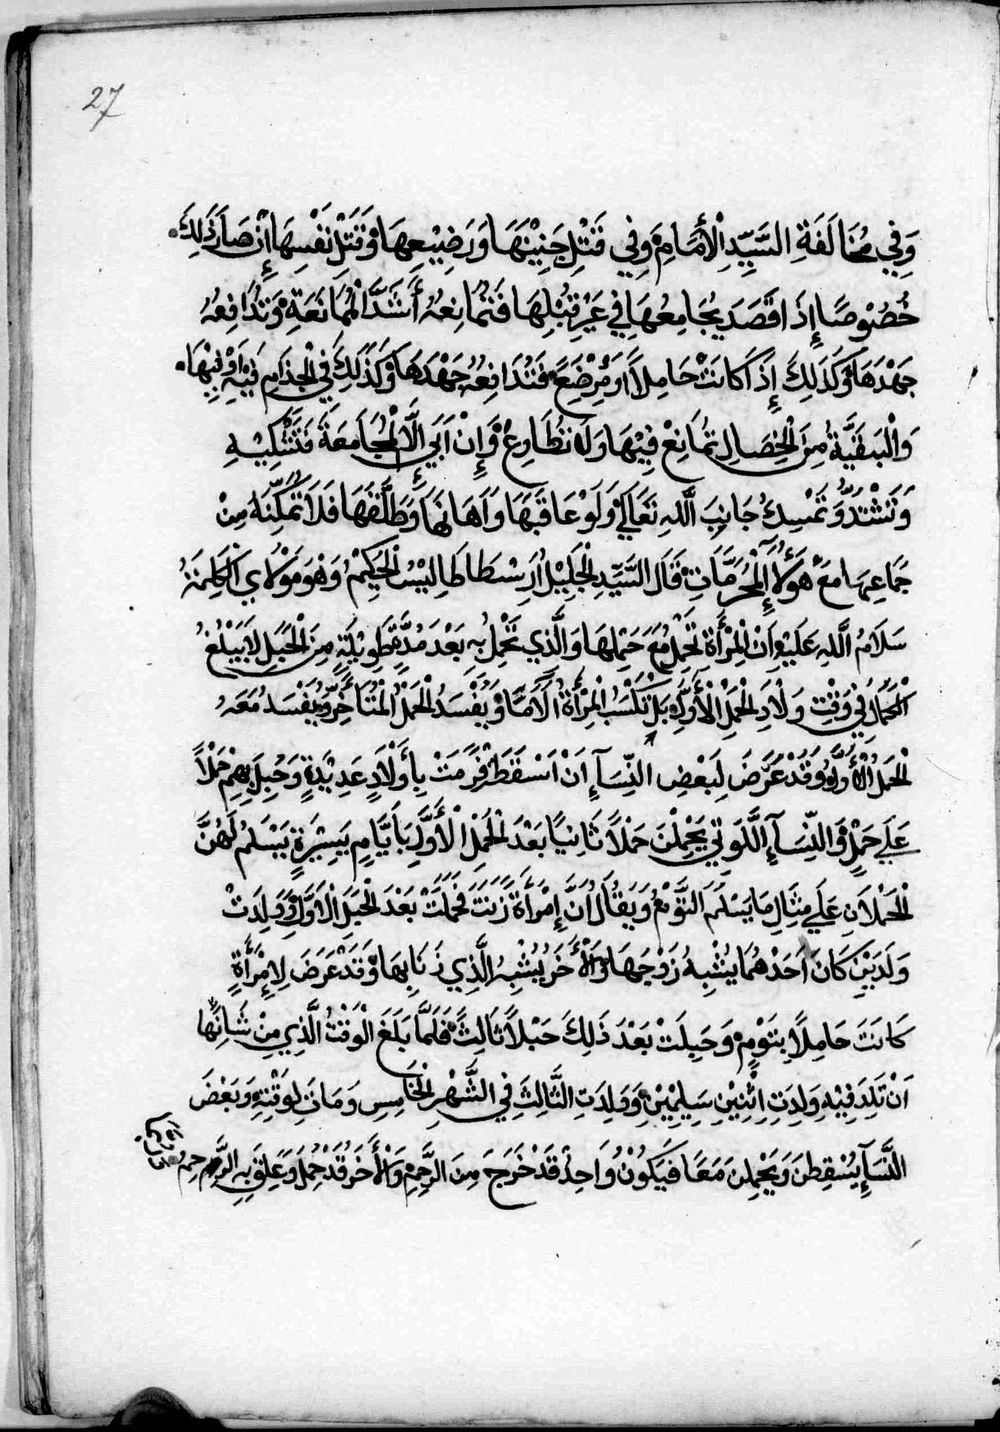 27
وَفِي مُخَالَفَةِ السَّيِّدِ الْأَمَامِ وَفِي قَتْلِ جَنِيْنَهَا وَرَضِيْعِهَا وَقَتْلْ نَفْسِهَا إِنْ صَارَ ذَلِكَ
خُصُوْصًا إِذَا قَصَدَ يُجَامِعُهَا فِي غَيْرِ قُبُلِهَا فَتُمَانِعُهُ أَشَدَّ الْمُمَانَعَةِ وَتُدَافِعُهُ
جَهْدَهَا وَكَذَلِكَ إِذَا كَانَتْ حَامِلاً أَوْ مُرْضِعَ فَتُدَافِعُهُ جَهْدَهَا وَكَذَلِكَ فِي الْجذَامِ فِيْهِ اَوْفِيْهَا
وَالْبَقِيَّةُ مِنَ الْخِصَالِ تُمَانِعْ فِيْهَا وَلَا تُطَاوِعْ وَإِنْ اَبَي إِلَّا الْمُجَامَعَةَ فَتَشْكِيْهِ
وَتَشْتَدُّ وَتَمْسِكُ جَانِبَ اللَّهِ تَعَالَي وَلَوْ عَاقَبَهَا وَاَهَانَهَا وَطَلَّقَهَا فَلَا تُمَكِّنَهُ مِنْ
جَمَاعِهَا مَعَ هَؤُلَآءِ الْمُحَرَّمَاتِ قَالَ السَّيِّدِ الْجَلِيْلْ أَرِسْطَاطَالِيْسُ الْحَكِيْمُ وَهُوَ مَوْلَاي الْكَلِمَةُ
سَلَامُ اللَّهِ عَلَيْهِ اَنْ الْمِرْأَةَ تَحْمِلُ مَعَ حَمْلِهَا وَالَّذِي تَحْمِلُ بِهِ بَعْدَ مُدَّةٍ طَوِيْلَةٍ مِنَ الْحَبَلِ لَا يَبْلُغُ
الْكَمَالَ فِي وَقْتِ وَلَادِ الْحَمْلِ الْأَوَّلِ بَلْ تَكْسَبُ الْمِرْأَةُ آلَامًا وَيَفْسَدُ الْحَمْلُ الْمُتَأَخِّرُ وَيَفْسَدُ مَعَهُ
الْحَمْلُ الْأَوَّلُ وَقَدْ عَرَضَ لِبَعْضِ النِّسَآءِ اَنْ اَسْقَطَتْ فَرَمَتْ بِأَوْلَادٍ عَدِيْدَةٍ وَحُبِلَ بِهِمْ حَمْلاً
عَلَي حَمْلٍ وَالنِّسَآءِ اللَّوَتِي يَحْمِلْنَ حَمْلاً ثَانِيًا بَعْدَ الْحَمْلِ الْأَوَّلِ بِأَيَّامٍ يَسِيْرَةٍ يَسْلَمُ لَهُنَّ
الْحَمْلَانِ عَلَي مِثَالِ مَا يَسْلَمَ التَّوْمُ وَيُقَالُ اَنَّ إِمْرَأَةً زَنَتْ فَحَمَلَتْ بَعْدَ الْحَبَلِ الْأَوَّلِ وَوَلِدَتْ
وَلَدَيْنِ كَانَ اَحَدْهُمَا يُشْبِهُ زَوْجَهَا وَالْأَخَرُ يُشْبِهُ الَّذِي زَنَا بِهَا وَقَدْ عَرَضَ لِإِمْرَأَةٍ
كَانَتَ حَامِلاً بِتَوْمٍ وَحَبِلَتْ بَعْدَ ذَلِكَ حَبْلاً ثَالِثً فَلَمَّا بَلَغَ الْوَقْتُ الَّذِي مِنْ شَانِهَا
اَنْ تَلِدَ فِيْهِ وَلِدَتِ اثْنِيْنِ سَلِيْمِيْنِ وَوَلِدَتِ الثَّالِثَ فِي الشَّهْرِ الْخَامِسِ وَمَاتَ لِوَقْتِهِ وَبَعْضَ
النِّسَآءِ يُسْقِطنَ وَيَحْمِلنَ مَعَا فَيَكُوْنُ وَاحِدْ قَدْ خَرَجَ مِنَ الرَّحِمِ وَالْأَخَرُ قَدْ حُمِلَ وَعَلِقَ بِهِ الرَّحِمِ